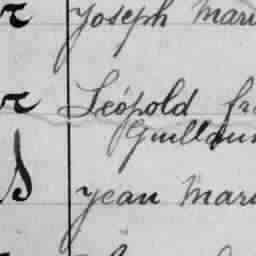 r Joseph Mari
r Léopold fr
Guillaum
S Jean Mari